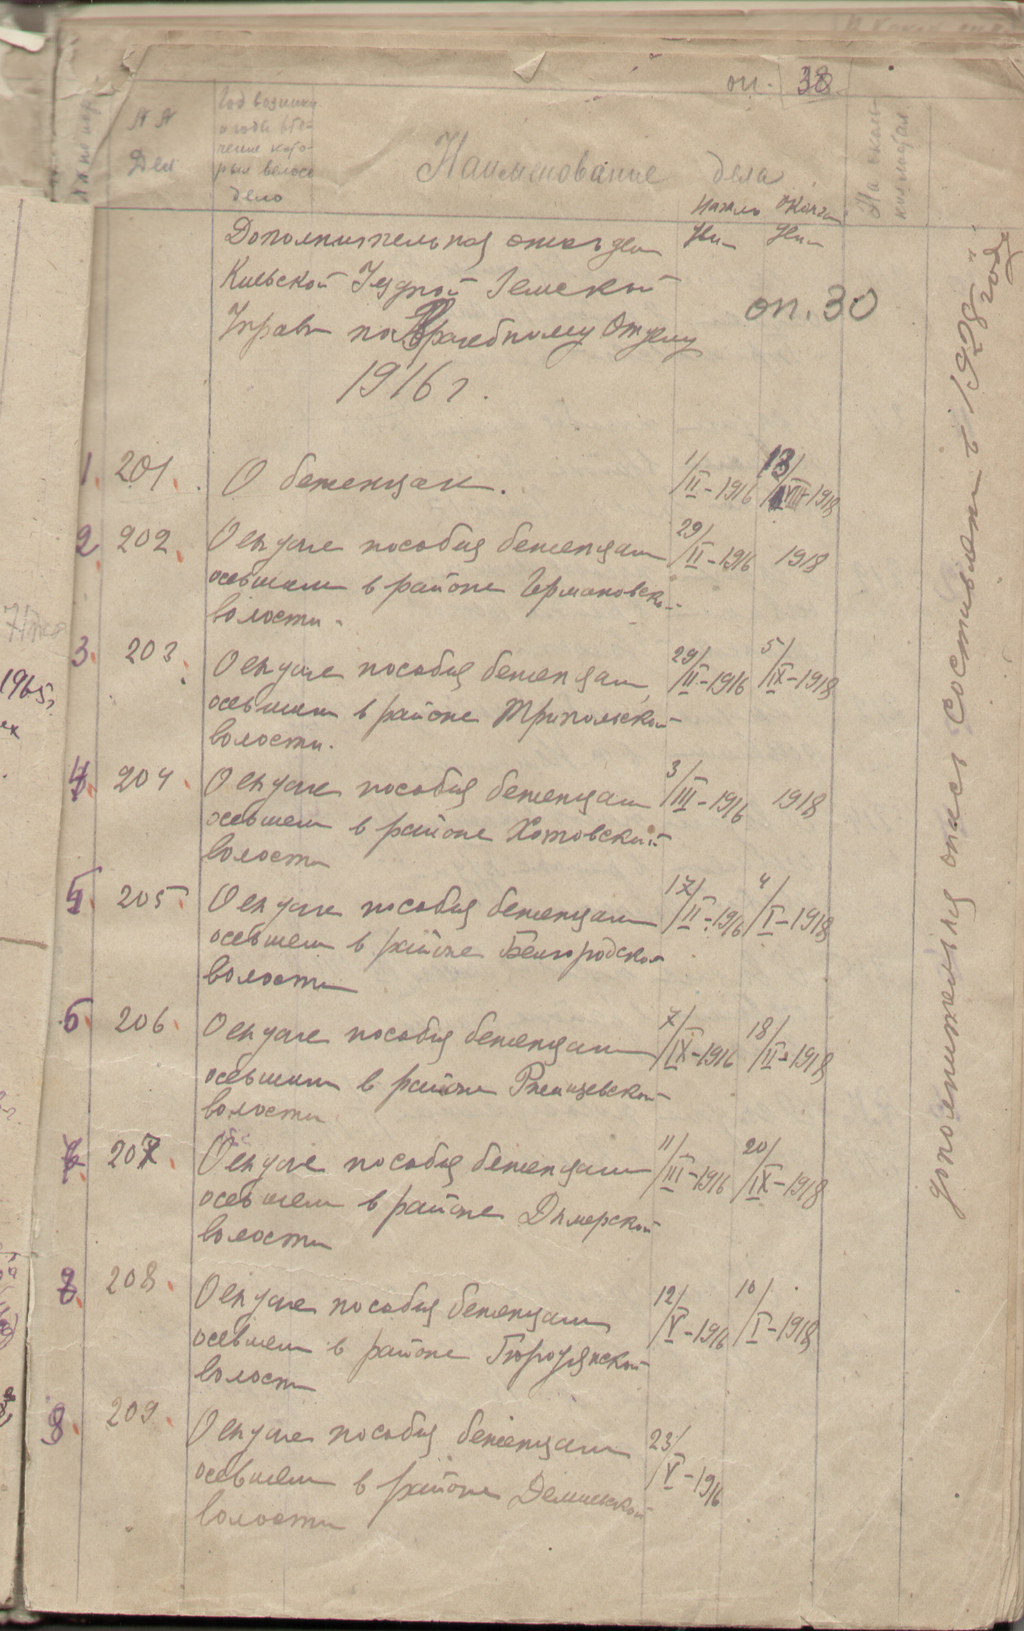 оп. 38
№№ Дел
Год возникн.
дело
Наименование дела
Начло Оконч.
Дополнительная опись дел
Киевской Уездной Земской
Управ по Врачебному Отделу
1916 г.
оп. 30
дополнительная опись составлена в 1928 году
1. 201. О беженцах. 1/II-1916 13/VIII-1918
2 202. О выдаче пособия беженцам 29/II-1916 1918
осевшим в районе Германовско-
волости.
3. 203. О выдаче пособия беженцам 29/II-1916 5/IX-1918
осевшим в районе Трипольской
волости.
4. 204. О выдаче пособия беженцам 3/III-1916 1918
осевшем в районе Хотовский
волости
5. 205. О выдаче пособия беженцам 17/II-1916 4/I-1918
осевшем в районе Белгородской
волости
6. 206. О выдаче пособия беженцам 7/IX-1916 18/II-1918
осевшим в районе Ржищевской
волости
207. О выдаче пособия беженцам 11/III-1916 20/IX-1918
осевшем в районе Дымерской
волости
208. О выдаче пособия беженцам 12/V-1916 10/I-1918
осевшем в районе Бородянской
волости
9. 209. О выдаче пособия беженцам 23/V-1916
осевшем в районе Демиевской
волости
1965г.